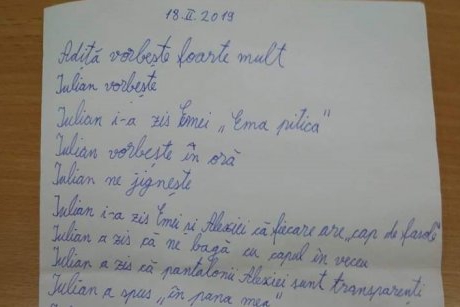 18.II.2019
Adiță vorbește foarte mult
Iulian vorbește
Iulian i-a zis Emei „Ema pitica"
Iulian vorbește în oră
Iulian ne jignește
Iulian i-a zis Emei și Alexiei că fiecare are „cap de fasole"
Iulian a zis că ne bagă cu capul în veceu
Iulian a zis că pantalonii Alexiei sunt transparenti
Iulian a spus „în pana mea"